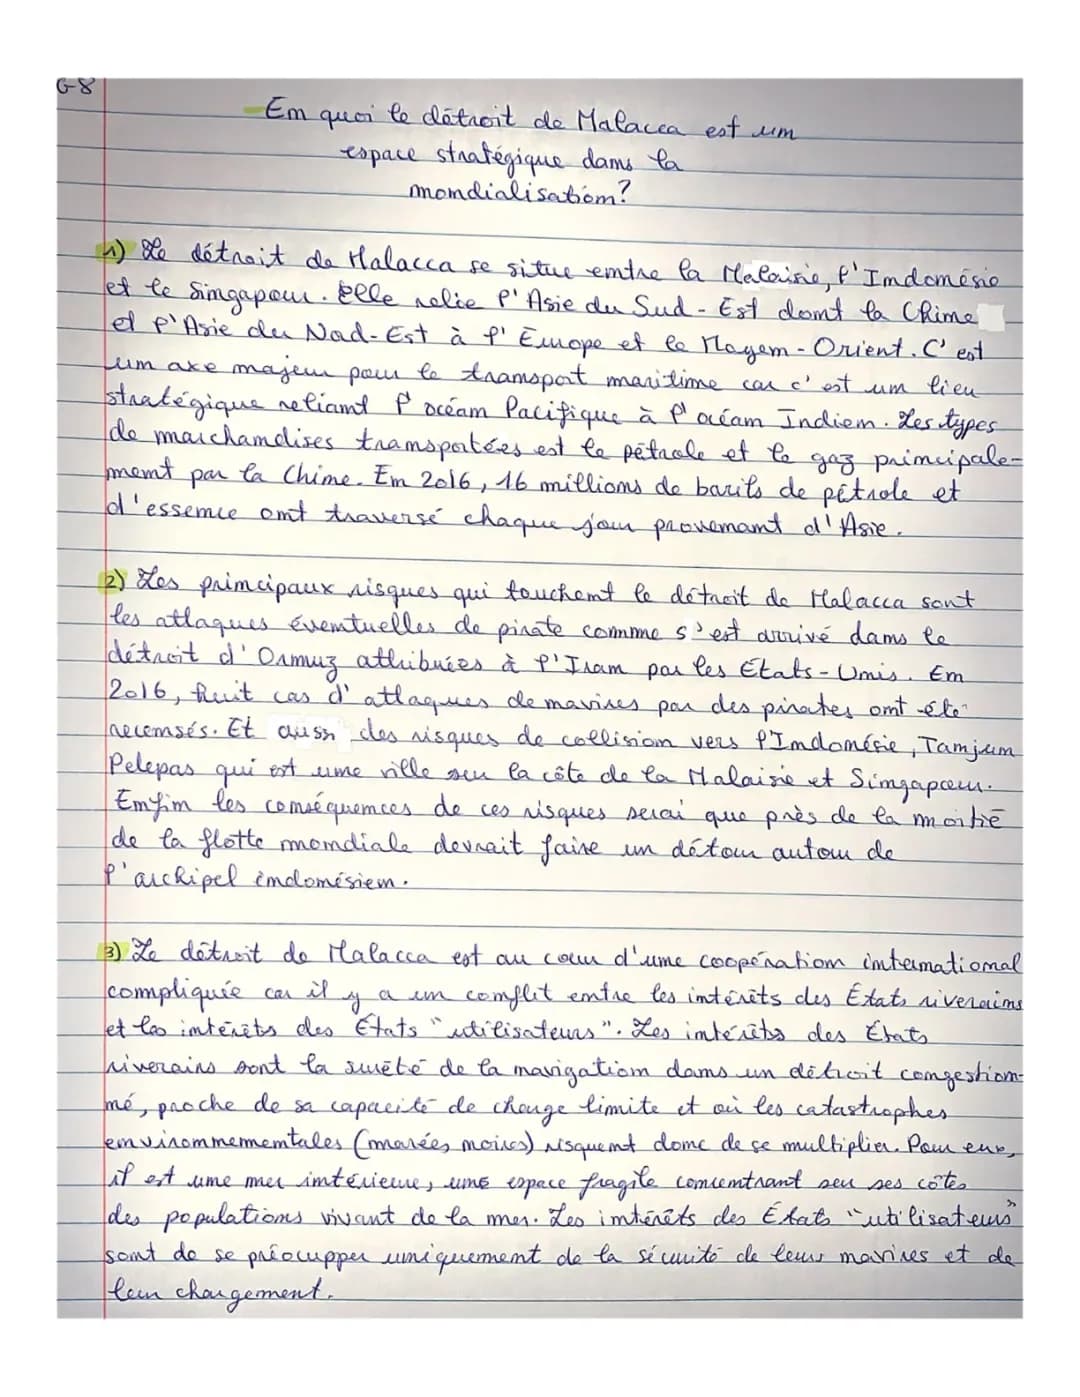 G-8
En quoi le détroit de Malacca est un
espace stratégique dans la
mondialisation?
1) Le détroit de Malacca se situe entre la Malaisie, l'Indonésie
et le Singapour. Elle relie l'Asie du Sud-Est dont la Chine
et l'Asie du Nod-Est à l'Europe et le Moyen-Orient. C'est
un axe majeur pour le transport maritime car c'est un lieu
stratégique reliant l'océan Pacifique à l'océan Indien. Les types
de marchandises transportées est le pétrole et le gaz principale-
ment par la Chine. En 2016, 16 millions de barils de pétrole et
d'essence ont traversé chaque jour provenant d'Asie.
2) Les principaux risques qui touchent le détroit de Malacca sont
les attaques éventuelles de pirate comme s'est arrivé dans le
détroit d'Ormuz attribuées à l'Iran par les États-Unis. En
2016, huit cas d'attaques de navires par des pirates ont été
recensés. Et aussi des risques de collision vers l'Indonésie, Tanjun
Pelepas qui est une ville sur la côte de la Malaisie et Singapour.
Enfin les conséquences de ces risques serai que près de la moitié
de la flotte mondiale devrait faire un détour autour de
l'archipel indonésien.
3) Le détroit de Malacca est au cœur d'une coopération international
compliquée car il y a un conflit entre les intérêts des États riverains
et les intérêts des États "utilisateurs". Les intérêts des États
riverains sont la sûreté de la navigation dans un détroit congestion-
né, proche de sa capacité de charge limite et où les catastrophes
environnementales (marées noires) risquent donc de se multiplier. Pour eux,
il est une mer intérieure, une espace fragile concentrant sur ses côtes
des populations vivant de la mer. Les intérêts des États "utilisateurs"
sont de se préocupper uniquement de la sécurité de leurs navires et de
leur chargement.